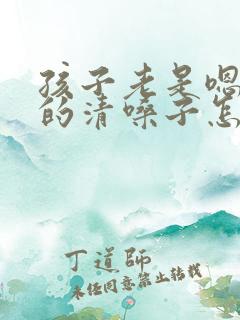 孩子老是嗯
的清嗓子怎
丁道師
未经同意禁止转载